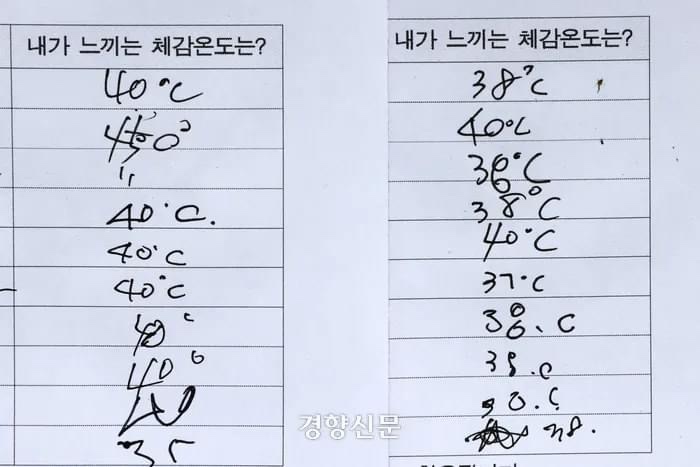 내가 느끼는 체감온도는?
40°C
〃
40°C.
40°C
40°C
40°
40°
35
내가 느끼는 체감온도는?
38°C
40°C
38°C
40°C
37°C
38.C
38.C
30.C
38.
경향신문